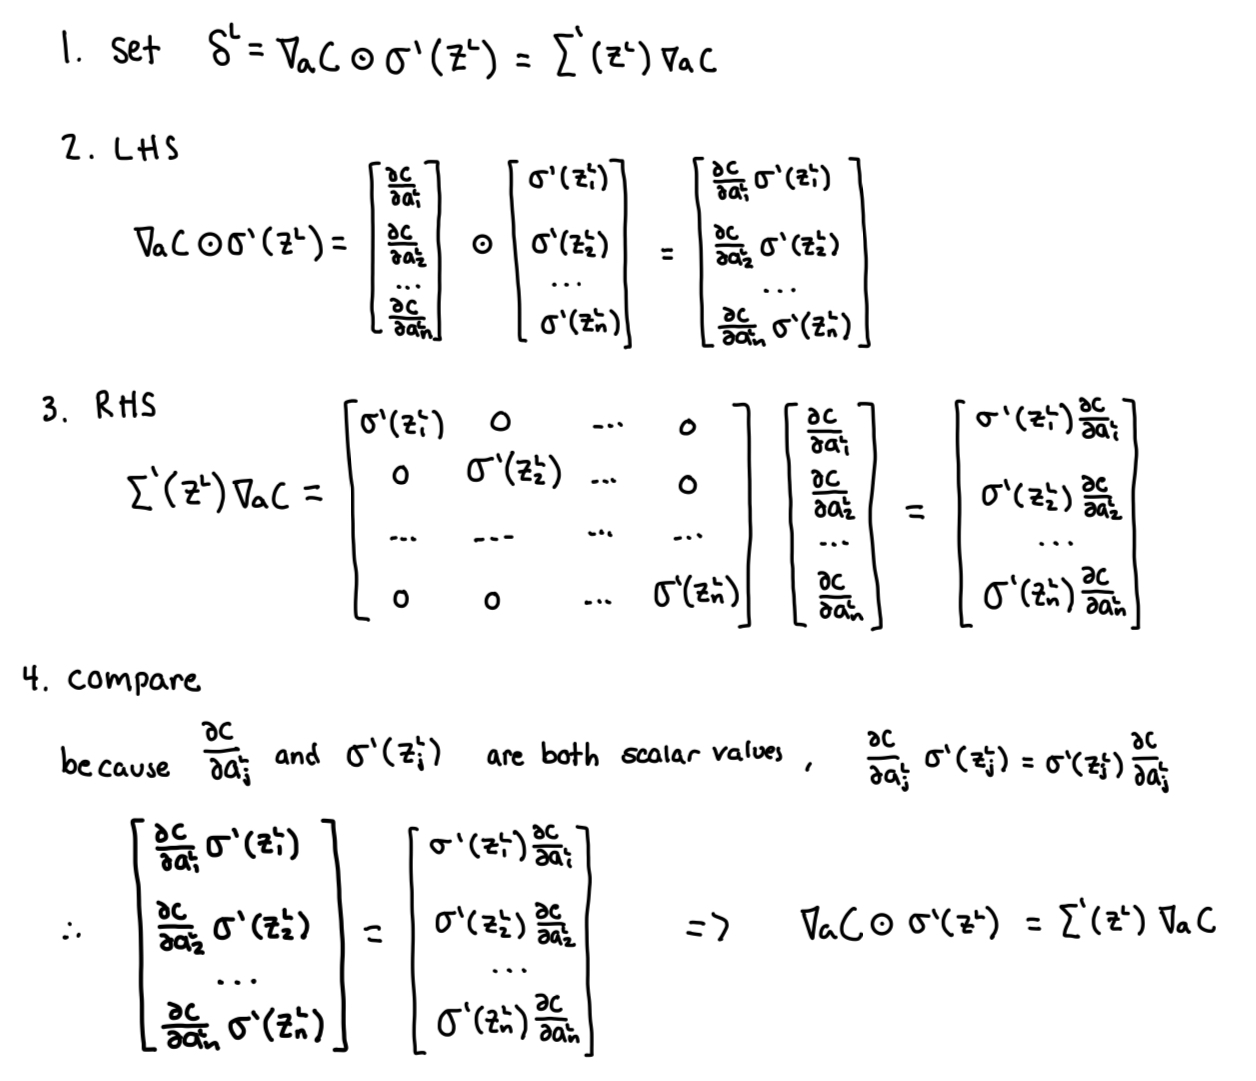 1. set δᴸ = ∇aC ⊙ σ'(zᴸ) = Σ'(zᴸ)∇aC
2. LHS
∇aC⊙σ'(zᴸ) = [∂C/∂a₁ᴸ ∂C/∂a₂ᴸ ... ∂C/∂aₙᴸ] ⊙ [σ'(z₁ᴸ) σ'(z₂ᴸ) ... σ'(zₙᴸ)] = [∂C/∂a₁ᴸ σ'(z₁ᴸ) ∂C/∂a₂ᴸ σ'(z₂ᴸ) ... ∂C/∂aₙᴸ σ'(zₙᴸ)]
3. RHS
Σ'(zᴸ)∇aC = [σ'(z₁ᴸ) 0 ... 0 0 σ'(z₂ᴸ) ... 0 ... ... ... ... 0 0 ... σ'(zₙᴸ)] [∂C/∂a₁ᴸ ∂C/∂a₂ᴸ ... ∂C/∂aₙᴸ] = [σ'(z₁ᴸ)∂C/∂a₁ᴸ σ'(z₂ᴸ)∂C/∂a₂ᴸ ... σ'(zₙᴸ)∂C/∂aₙᴸ]
4. compare
because ∂C/∂aⱼᴸ and σ'(zⱼᴸ) are both scalar values, ∂C/∂aⱼᴸ σ'(zⱼᴸ) = σ'(zⱼᴸ) ∂C/∂aⱼᴸ
∴ [∂C/∂a₁ᴸ σ'(z₁ᴸ) ∂C/∂a₂ᴸ σ'(z₂ᴸ) ... ∂C/∂aₙᴸ σ'(zₙᴸ)] = [σ'(z₁ᴸ)∂C/∂a₁ᴸ σ'(z₂ᴸ)∂C/∂a₂ᴸ ... σ'(zₙᴸ)∂C/∂aₙᴸ] => ∇aC ⊙ σ'(zᴸ) = Σ'(zᴸ) ∇aC